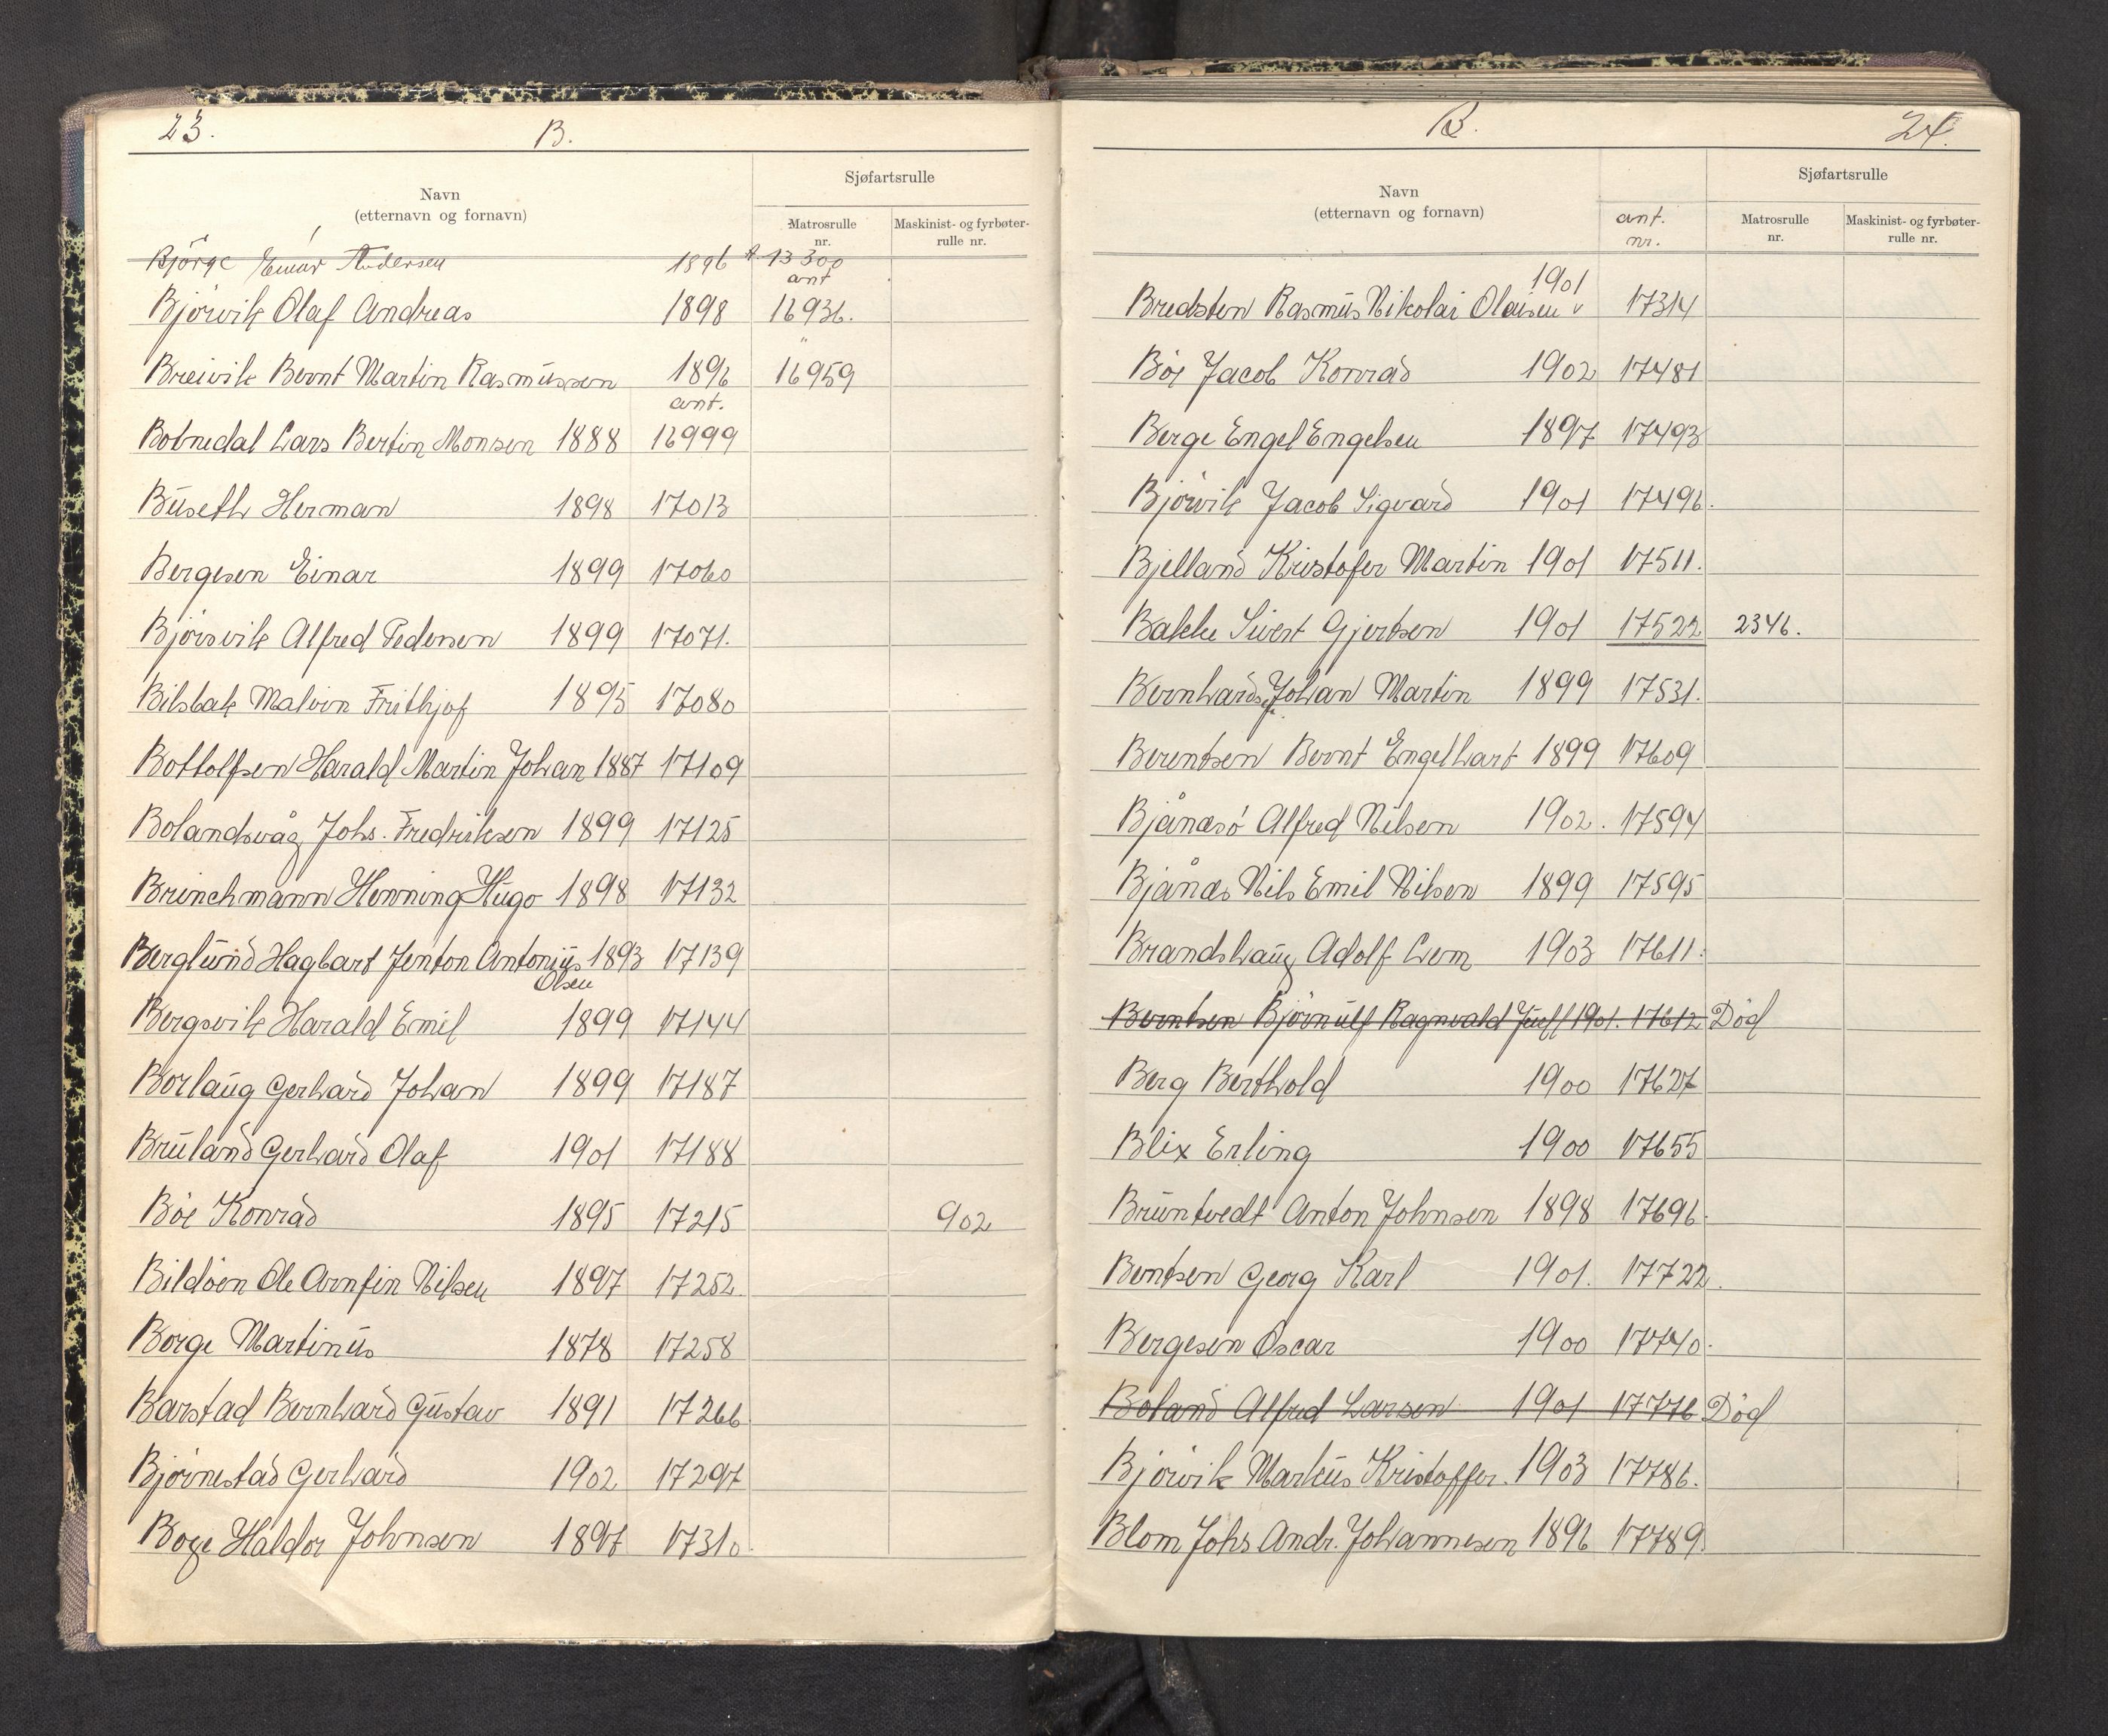 23.
B.
Navn
(etternavn og fornavn)
Sjøfartsrulle
Matrosrulle
nr.
Maskinist- og fyrbøter-
rulle nr.
Björge Einar Andersen 1896 A. 13300
ant
Björvik Olaf Andreas 1898 16936.
"
Breivik Bernt Martin Rasmussen 1896 16959
ant.
Botnedal Lars Bertin Monsen 1888 16999
Buseth Herman 1898 17013
Bergesen Einar 1899 17060
Björsvik Alfred Pedersen 1899 17071.
Bilsbak Malvin Frithjof 1895 17080
Bottolfsen Harald Martin Johan 1887 17109
Bolandsvåg Johs. Fredriksen 1899 17125
Brinchmann Henning Hugo 1898 17132
Berglund Hagbart Jenton Antonius 1893 17139
Olsen
Bergsvik Harald Emil 1899 17144
Borlaug Gerhard Johan 1899 17187
Bruland Gerhard Olaf 1901 17188
Böe Konrad 1895 17215 902
Bildöen Ole Arnfin Nilsen 1897 17252.
Borge Martinus 1878 17258
Barstad Bernhard Gustav 1891 17266
Björnestad Gerhard 1902 17297
Boge Haldor Johnsen 1897 17310.
B.
24.
Navn
(etternavn og fornavn)
ant.
nr.
Sjøfartsrulle
Matrosrulle
nr.
Maskinist- og fyrbøter-
rulle nr.
1901
Bredsten Rasmus Nikolai Olaisen v 17314
Böe Jacob Konrad 1902 17481
Berge Engel Engelsen 1897 17493
Björvik Jacob Sigvard 1901 17496.
Bjelland Kristofer Martin 1901 17511.
Bakke Sivert Gjertsen 1901 17522 2346.
Bernhardsen Johan Martin 1899 17531.
Berentsen Bernt Engelhart 1899 17609
Bjånesö Alfred Nilsen 1902. 17594
Bjånes Nils Emil Nilsen 1899 17595
Brandshaug Adolf Lem 1903 17611.
Berntsen Björnulf Ragnvald Juell 1901. 17612 Död
Berg Berthold 1900 17627
Blix Erling 1900 17655
Bruntvedt Anton Johnsen 1898 17696.
Bentsen Georg Karl 1901. 17722.
Bergesen Oscar 1900 17740.
Boland Alfred Larsen 1901 17776 Död
Björvik Markus Kristoffer. 1903 17786.
Blom Johs Andr. Johannesen 1896 17789.